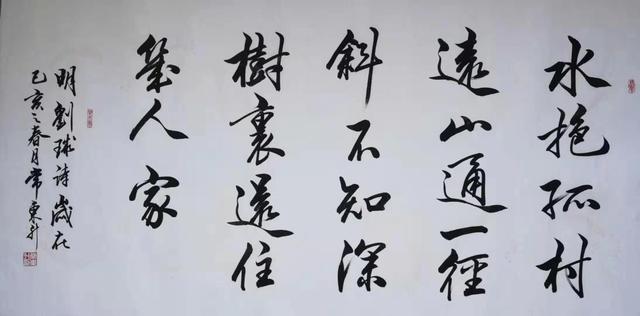 水抱孤村
遠山通一徑
斜不知深
樹裏還住
幾人家
明劉球詩歲在
己亥之春月常東升